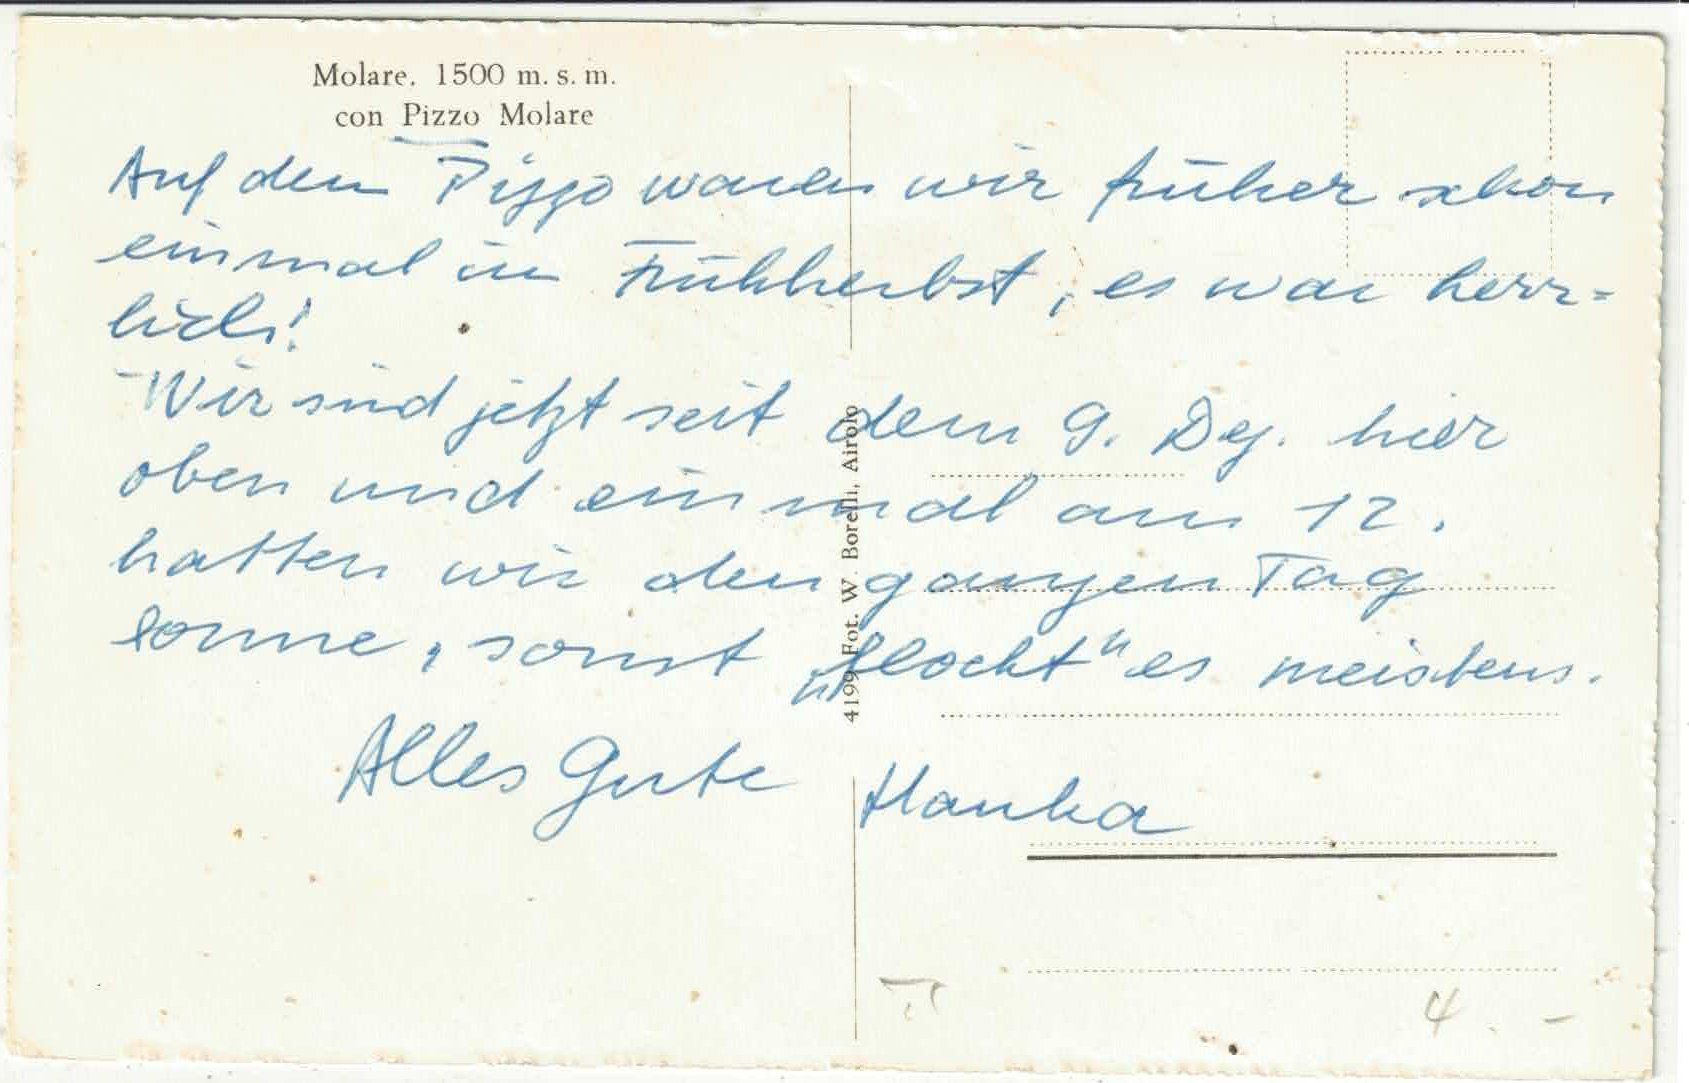 Molare. 1500 m. s. m.
con Pizzo Molare
Auf dem Pizzo waren wir früher schon
einmal im Frühherbst, es war herr=
lich!
Wir sind jetzt seit dem 9. Dez. hier
oben und einmal am 12.
hatten wir den ganzen Tag
Sonne, sonst „flockt“ es meistens.
Alles Gute Hanka
4199 Fot. W. Borelli, Airolo
4.-